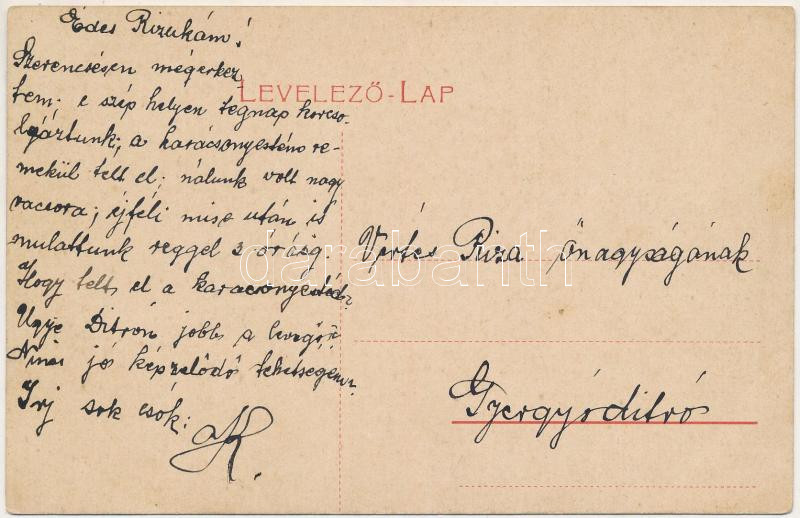 Édes Rizukám!
Szerencsésen megérkez
tem; e szép helyen tegnap korcso-
lyáztunk; a karácsonyesténk re-
mekül telt el; nálunk volt nagy
vacsora; éjféli mise után is
mulattunk reggel 3 óráig.
Hogy telt el a karacsonyestéd?
Ugye Ditrón jobb a levegő?
jó képzelődő tehetségem?
Irj sok csók:
K.
LEVELEZŐ-LAP
Vértes Riza Őnagyságának
Gyergyóditró
darabanth